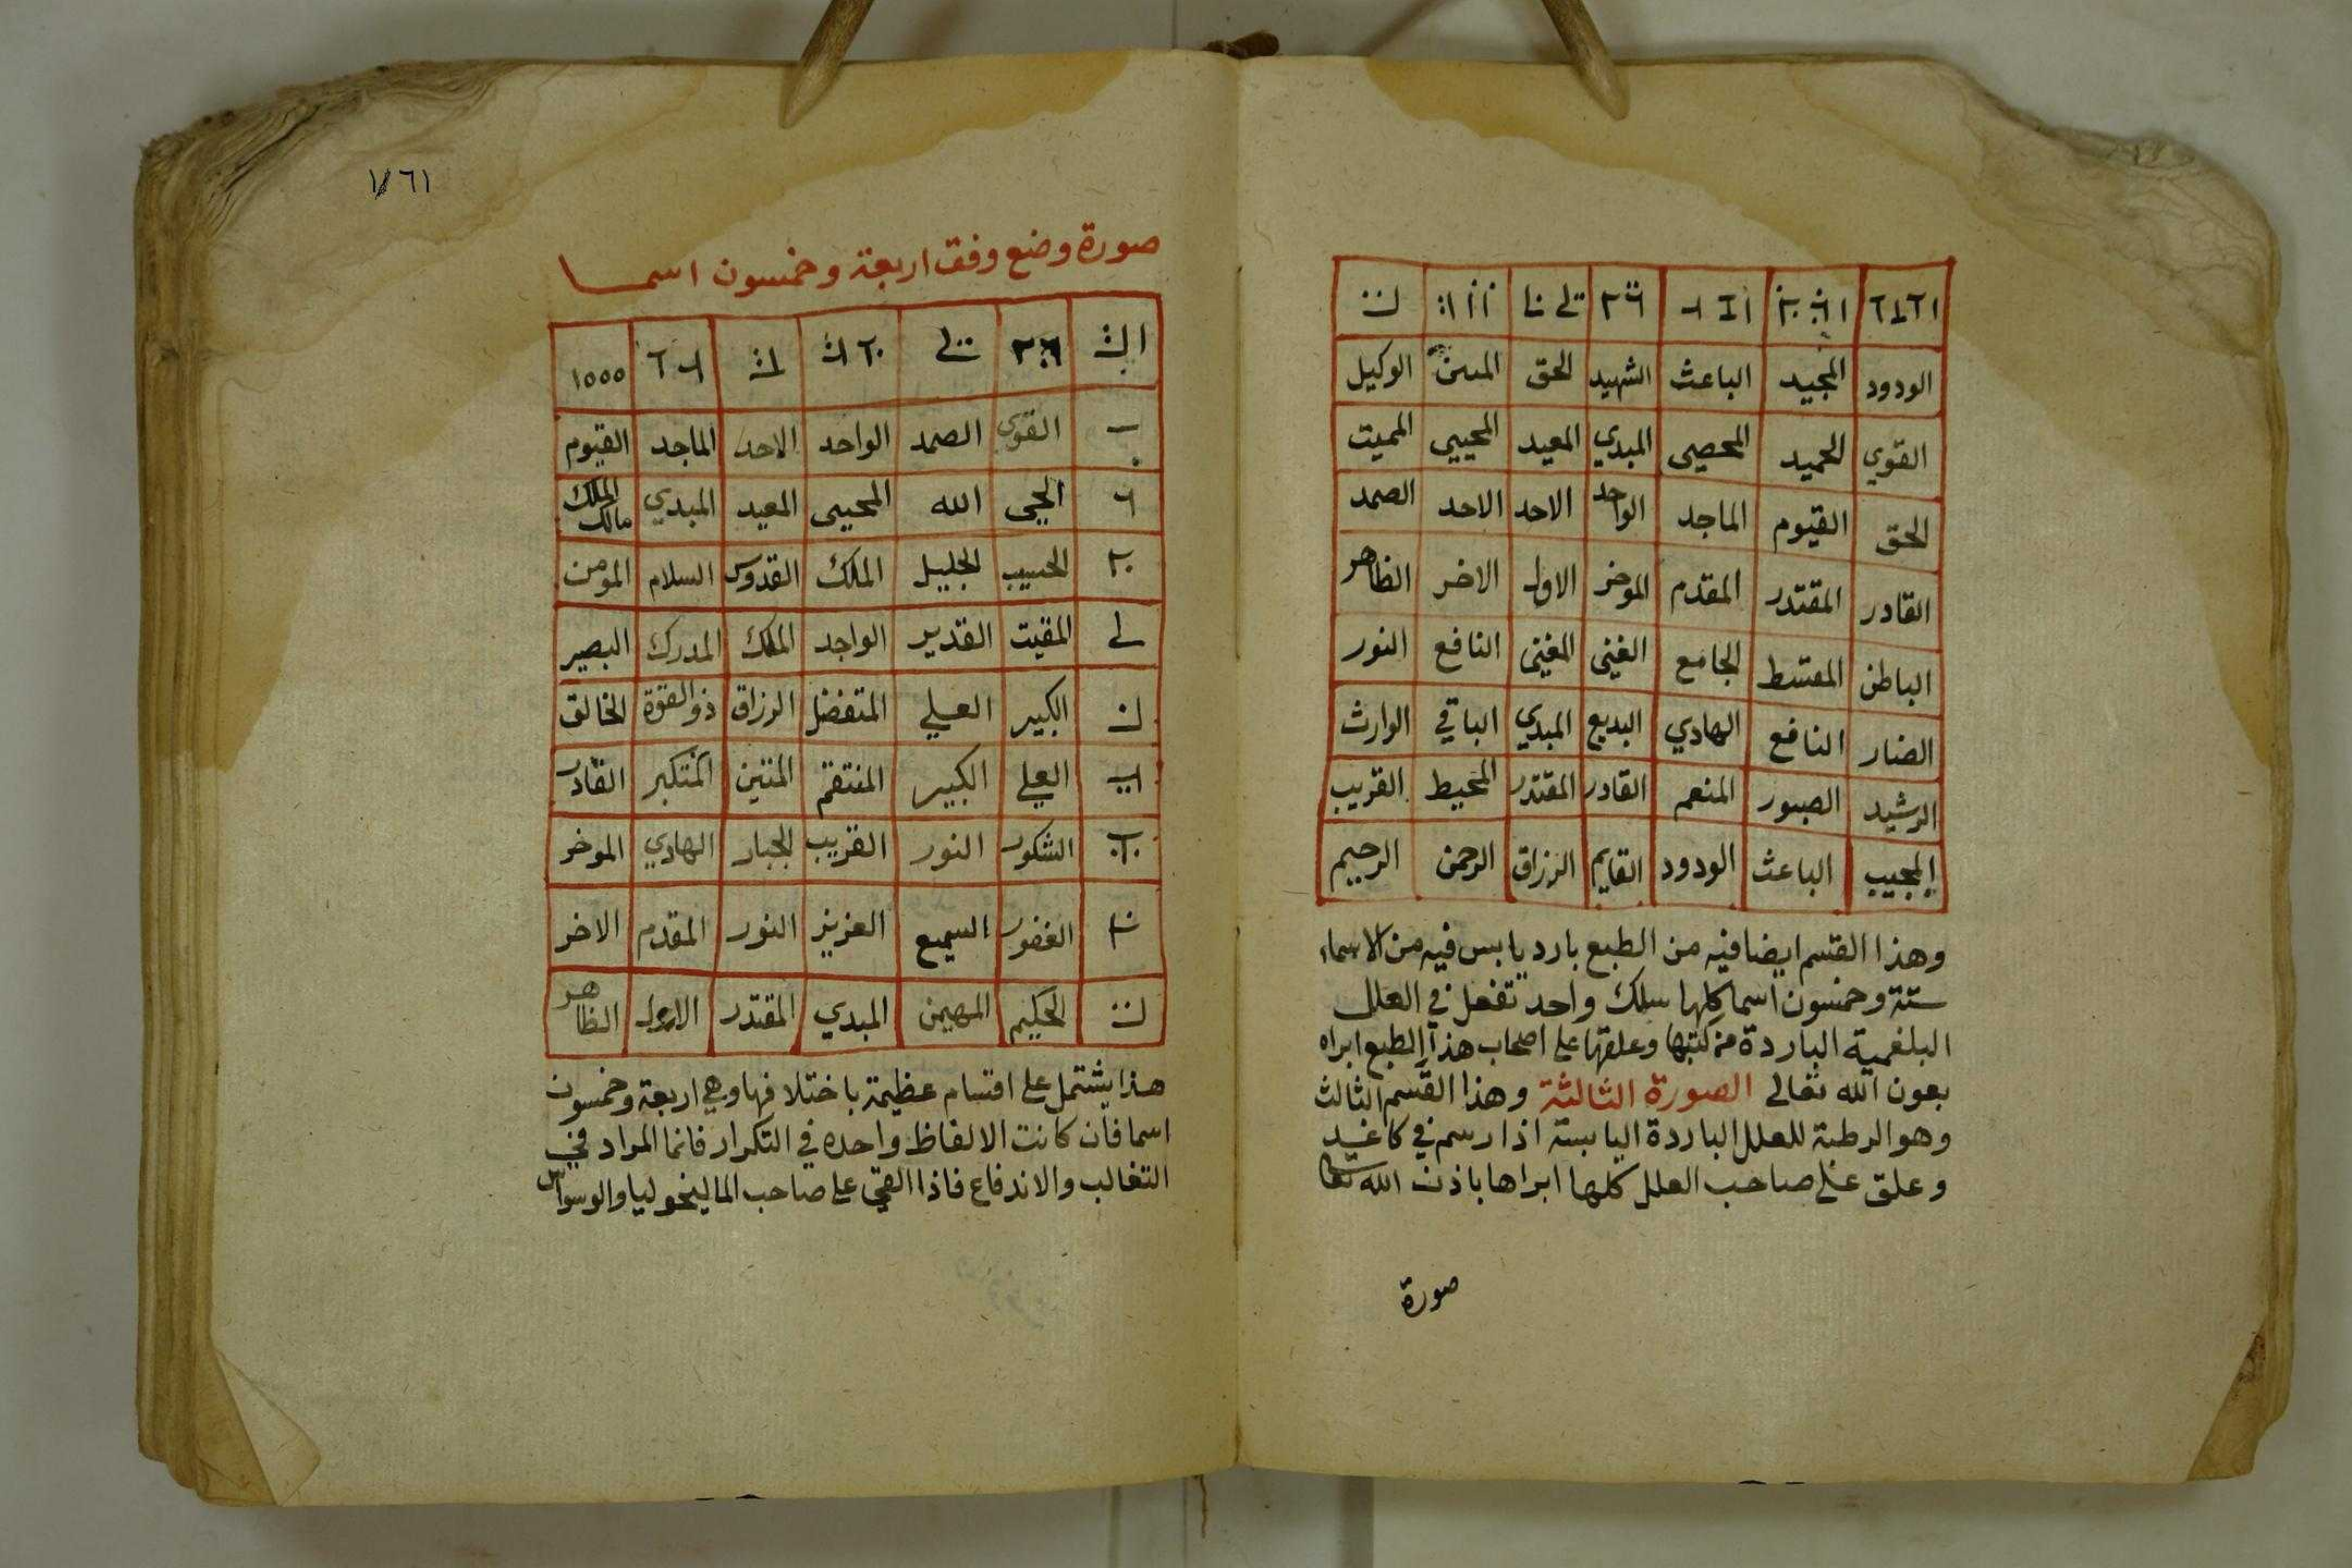 الودود المجيد الباعث الشهيد الحق المبين الوكيل
القوي الحميد المحصي المبدي المعيد المحيي المميت
الحق القيوم الماجد الواحد الاحد الاحد الصمد
القادر المقتدر المقدم الموخر الاول الاخر الظاهر
الباطن المقسط الجامع الغني المغني النافع النور
الضار النافع الهادي البديع المبدي الباقي الوارث
الرشيد الصبور المنعم القادر المقتدر المحيط القريب
المجيب الباعث الودود القايم الرزاق الرحمن الرحيم
وهذا القسم ايضا فيه من الطبع بارد يابس فيه من الاسماء
ستة وخمسون اسما كلها سلك واحد تفعل في العلل
البلغمية الباردة من كتبها وعلقها على اصحاب هذا الطبع ابراه
بعون الله تعالى الصورة الثالثة وهذا القسم الثالث
وهو الرطبة للعلل الباردة اليابسة اذا رسم في كاغد
وعلق على صاحب العلل كلها ابراها باذن الله تعا
صورة
صورة وضع وفق اربعة وخمسون اسما
١٥٥٥
القوي الصمد الواحد الاحد الماجد القيوم
الحي الله المحيي المعيد المبدي مالك الملك
الحسيب الجليل الملك القدوس السلام المومن
المقيت القدير الواجد الملك المدرك البصير
الكبير العلي المتفضل الرزاق ذو القوة الخالق
العلي الكبير المنتقم المتين المتكبر القادر
الشكور النور القريب الجبار الهادي الموخر
الغفور السميع العزيز النور المقدم الاخر
الحكيم المهيمن المبدي المقتدر الاول الظاهر
هذا يشتمل على اقسام عظيمة باختلافها وهي اربعة وخمسون
اسما فان كانت الالفاظ واحده في التكرار فانما المراد في
التغالب والاندفاع فاذا القي على صاحب الماليخوليا والوسواس